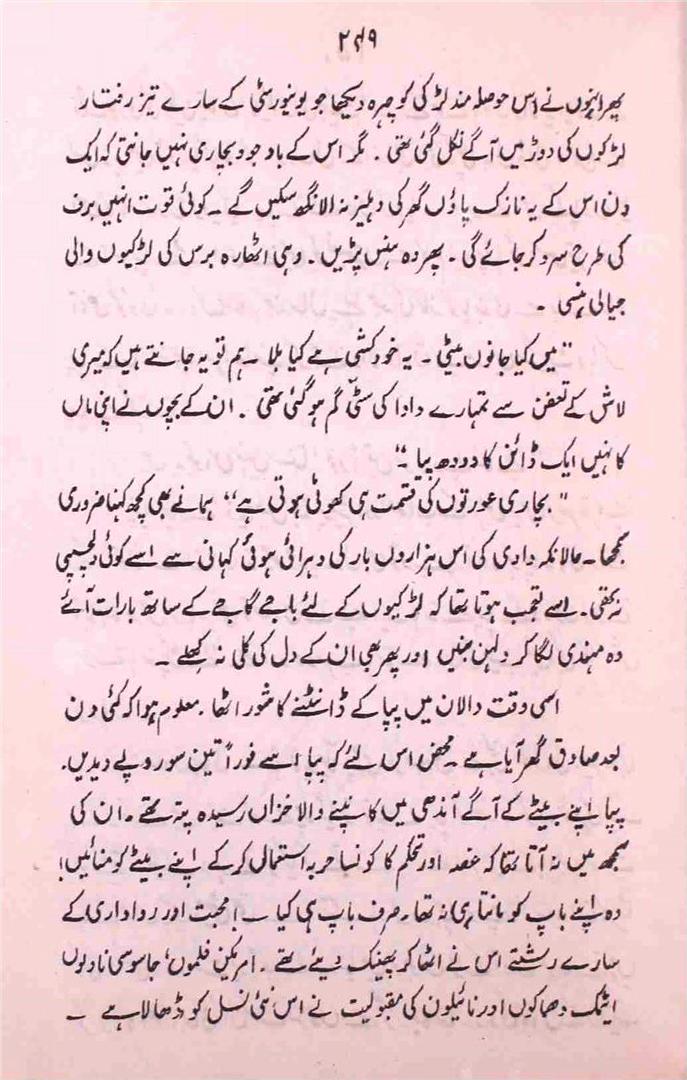 ۲۴۹
پھر انہوں نے اس حوصلہ مند لڑکی کو چہرہ دیکھا جو یونیورسٹی کے سارے تیز رفتار
لڑکوں کی دوڑ میں آگے نکل گئی تھی ۔ مگر اس کے باوجود بچاری نہیں جانتی کہ ایک
دن اس کے یہ نازک پاؤں گھر کی دہلیز نہ الانگھ سکیں گے ۔ کوئی قوت انہیں برف
کی طرح سرد کر جائے گی ۔ پھر وہ ہنس پڑیں ۔ وہی اٹھارہ برس کی لڑکیوں والی
جیالی ہنسی ۔
"میں کیا جانوں بیٹی ۔ یہ خودکشی ہے کیا بلا ۔ ہم تو یہ جانتے ہیں کہ میری
لاش کے تعفن سے تمہارے دادا کی سٹی گم ہو گئی تھی ۔ ان کے بچوں نے اپنی ماں
کا نہیں ایک ڈائن کا دودھ پیا ۔"
"بچاری عورتوں کی قسمت ہی کھوٹی ہوتی ہے" ہما نے بھی کچھ کہنا ضروری
سمجھا ۔ حالانکہ دادی کی اس ہزاروں بار کی دہرائی ہوئی کہانی سے اسے کوئی دلچسپی
نہ تھی ۔ اسے تعجب ہوتا تھا کہ لڑکیوں کے لئے باجے گاجے کے ساتھ بارات آئے
وہ مہندی لگا کر دلہن بنیں اور پھر بھی ان کے دل کی کلی نہ کھلے ۔
اسی وقت دالان میں پپا کے ڈانٹنے کا شور اٹھا ۔ معلوم ہوا کہ کئی دن
بعد صادق گھر آیا ہے ۔ محض اس لئے کہ پپا اسے فوراً تین سو روپے دیدیں۔
پپا اپنے بیٹے کے آگے آندھی میں کانپنے والا خزاں رسیدہ پتہ تھے ۔ ان کی
سمجھ میں نہ آتا تھا کہ غصہ اور تحکم کا کونسا حربہ استعمال کر کے اپنے بیٹے کو منائیں!
وہ اپنے باپ کو مانتا ہی نہ تھا ۔ صرف باپ ہی کیا ۔! محبت اور رواداری کے
سارے رشتے اس نے اٹھا کر پھینک دیئے تھے ۔ امریکن فلموں، جاسوسی ناولوں
ایٹمک دھاکوں اور نائیلون کی مقبولیت نے اس نئی نسل کو ڈھالا ہے ۔